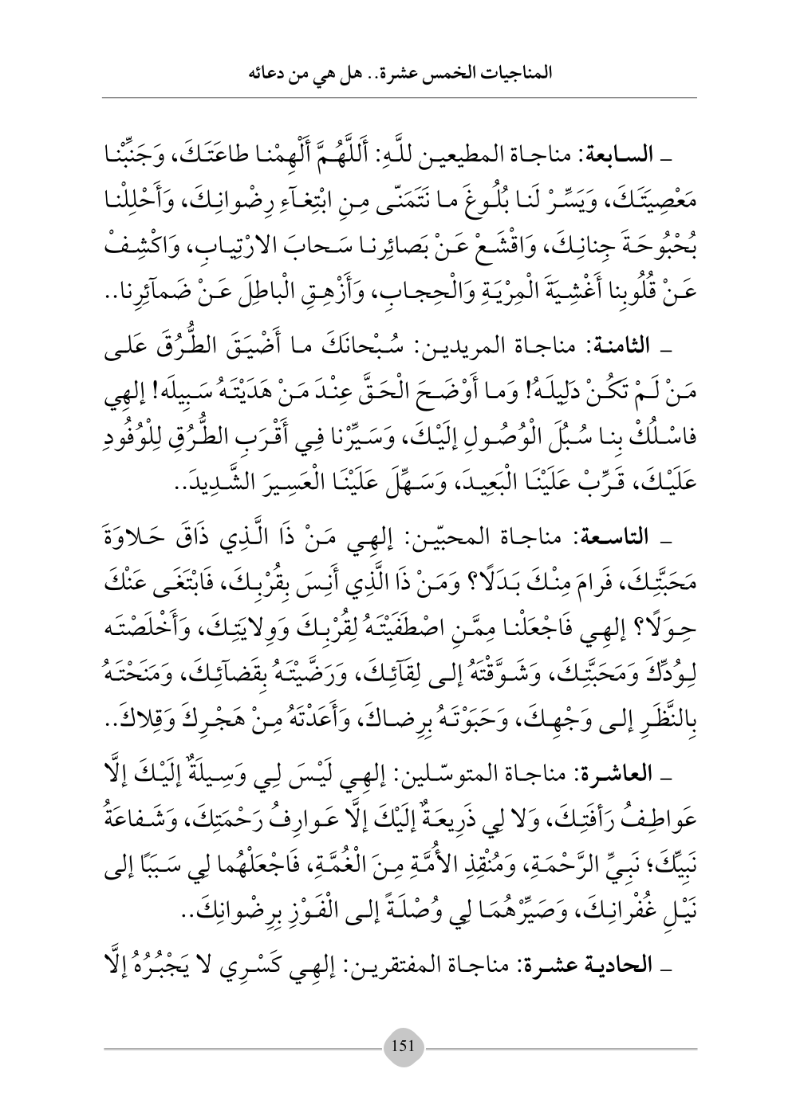 المناجيات الخمس عشرة.. هل هي من دعائه
ـ السابعة: مناجاة المطيعين للَّهِ: أَللَّهُمَّ أَلْهِمْنا طاعَتَكَ، وَجَنِّبْنا
مَعْصِيَتَكَ، وَيَسِّرْ لَنا بُلُوغَ ما نَتَمَنّى مِنِ ابْتِغآءِ رِضْوانِكَ، وَأَحْلِلْنا
بُحْبُوحَةَ جِنانِكَ، وَاقْشَعْ عَنْ بَصائِرِنا سَحابَ الارْتِيابِ، وَاكْشِفْ
عَنْ قُلُوبِنا أَغْشِيَةَ الْمِرْيَةِ وَالْحِجابِ، وَأَزْهِقِ الْباطِلَ عَنْ ضَمآئِرِنا..
ـ الثامنة: مناجاة المريدين: سُبْحانَكَ ما أَضْيَقَ الطُّرُقَ عَلى
مَنْ لَمْ تَكُنْ دَلِيلَهُ! وَما أَوْضَحَ الْحَقَّ عِنْدَ مَنْ هَدَيْتَهُ سَبِيلَه! إلهِي
فاسْلُكْ بِنا سُبُلَ الْوُصُولِ إلَيْكَ، وَسَيِّرْنا فِي أَقْرَبِ الطُّرُقِ لِلْوُفُودِ
عَلَيْكَ، قَرِّبْ عَلَيْنَا الْبَعِيدَ، وَسَهِّلْ عَلَيْنَا الْعَسِيرَ الشَّدِيدَ..
ـ التاسعة: مناجاة المحبّين: إلهِي مَنْ ذَا الَّذِي ذَاقَ حَلاوَةَ
مَحَبَّتِكَ، فَرامَ مِنْكَ بَدَلًا؟ وَمَنْ ذَا الَّذِي أَنِسَ بِقُرْبِكَ، فَابْتَغَى عَنْكَ
حِوَلًا؟ إلهِي فَاجْعَلْنا مِمَّنِ اصْطَفَيْتَهُ لِقُرْبِكَ وَوِلايَتِكَ، وَأَخْلَصْتَه
لِوُدِّكَ وَمَحَبَّتِكَ، وَشَوَّقْتَهُ إلى لِقَآئِكَ، وَرَضَّيْتَهُ بِقَضآئِكَ، وَمَنَحْتَهُ
بِالنَّظَرِ إلى وَجْهِكَ، وَحَبَوْتَهُ بِرِضاكَ، وَأَعَدْتَهُ مِنْ هَجْرِكَ وَقِلاكَ..
ـ العاشرة: مناجاة المتوسّلين: إلهِي لَيْسَ لِي وَسِيلَةٌ إلَيْكَ إلَّا
عَواطِفُ رَأفَتِكَ، وَلا لِي ذَرِيعَةٌ إلَيْكَ إلَّا عَوارِفُ رَحْمَتِكَ، وَشَفاعَةُ
نَبِيِّكَ؛ نَبِيِّ الرَّحْمَةِ، وَمُنْقِذِ الأُمَّةِ مِنَ الْغُمَّةِ، فَاجْعَلْهُما لِي سَبَبًا إلى
نَيْلِ غُفْرانِكَ، وَصَيِّرْهُمَا لِي وُصْلَةً إلى الْفَوْزِ بِرِضْوانِكَ..
ـ الحادية عشرة: مناجاة المفتقرين: إلهِي كَسْرِي لا يَجْبُرُهُ إلَّا
151